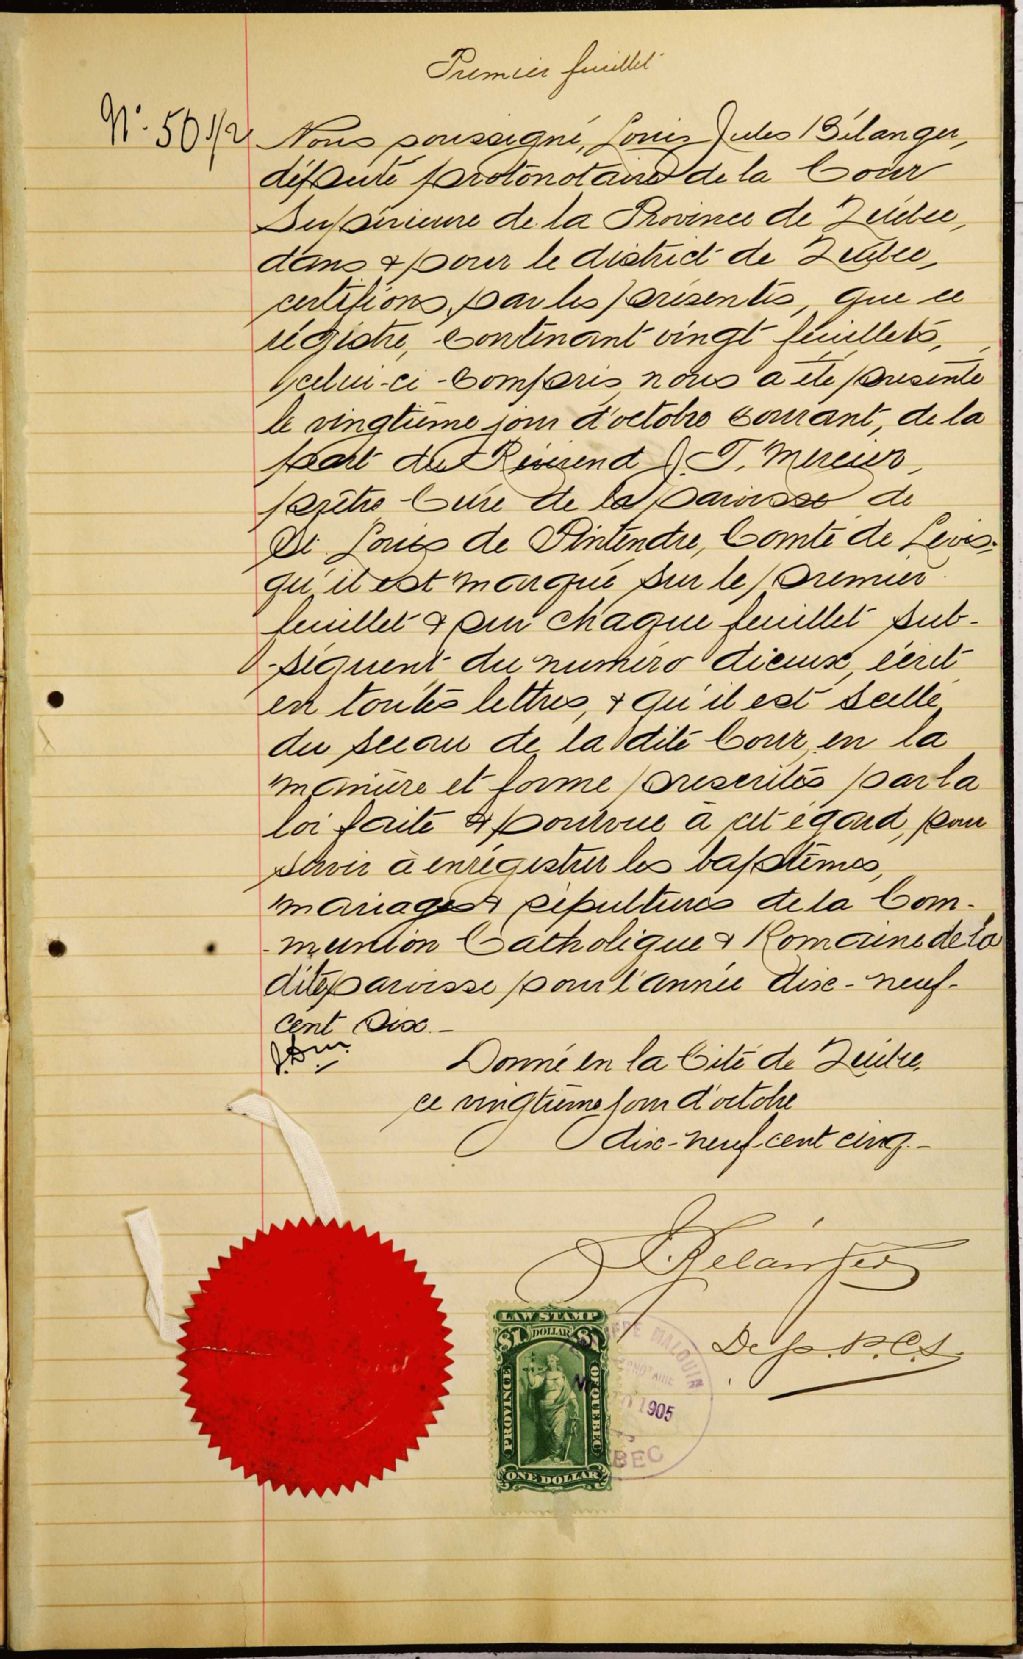 Premier feuillet
No. 50 1/2
Nous soussigné, Louis Jules Bélanger,
député protonotaire de la Cour
Supérieure de la Province de Québec,
dans & pour le district de Québec,
certifions, par les présentes, que ce
régistre, contenant vingt feuillets,
celui-ci compris, nous a été présenté
le vingtième jour d'octobre courant, de la
part du Révérend J. T. Mercier,
prêtre Curé de la paroisse de
St Louis de Pintendre, Comté de Lévis,
qu'il est marqué sur le premier
feuillet & sur chaque feuillet sub-
-séquent du numéro d'iceux, écrit
en toutes lettres, & qu'il est scellé
du sceau de la dite Cour, en la
manière et forme prescrites par la
loi faite & pourvue à cet égard, pour
servir à enrégistrer les baptêmes,
mariages & sépultures de la Com-
-munion Catholique & Romaine de la
dite paroisse pour l'année dix-neuf-
cent six.-
Donné en la Cité de Québec,
ce vingtième jour d'octobre
dix-neuf-cent cinq.-
Bélanger
Dep. P.C.S.
LAW STAMP
$1 DOLLAR $1
PROVINCE OF QUEBEC
ONE DOLLAR
MALOUIN
1905
BEC